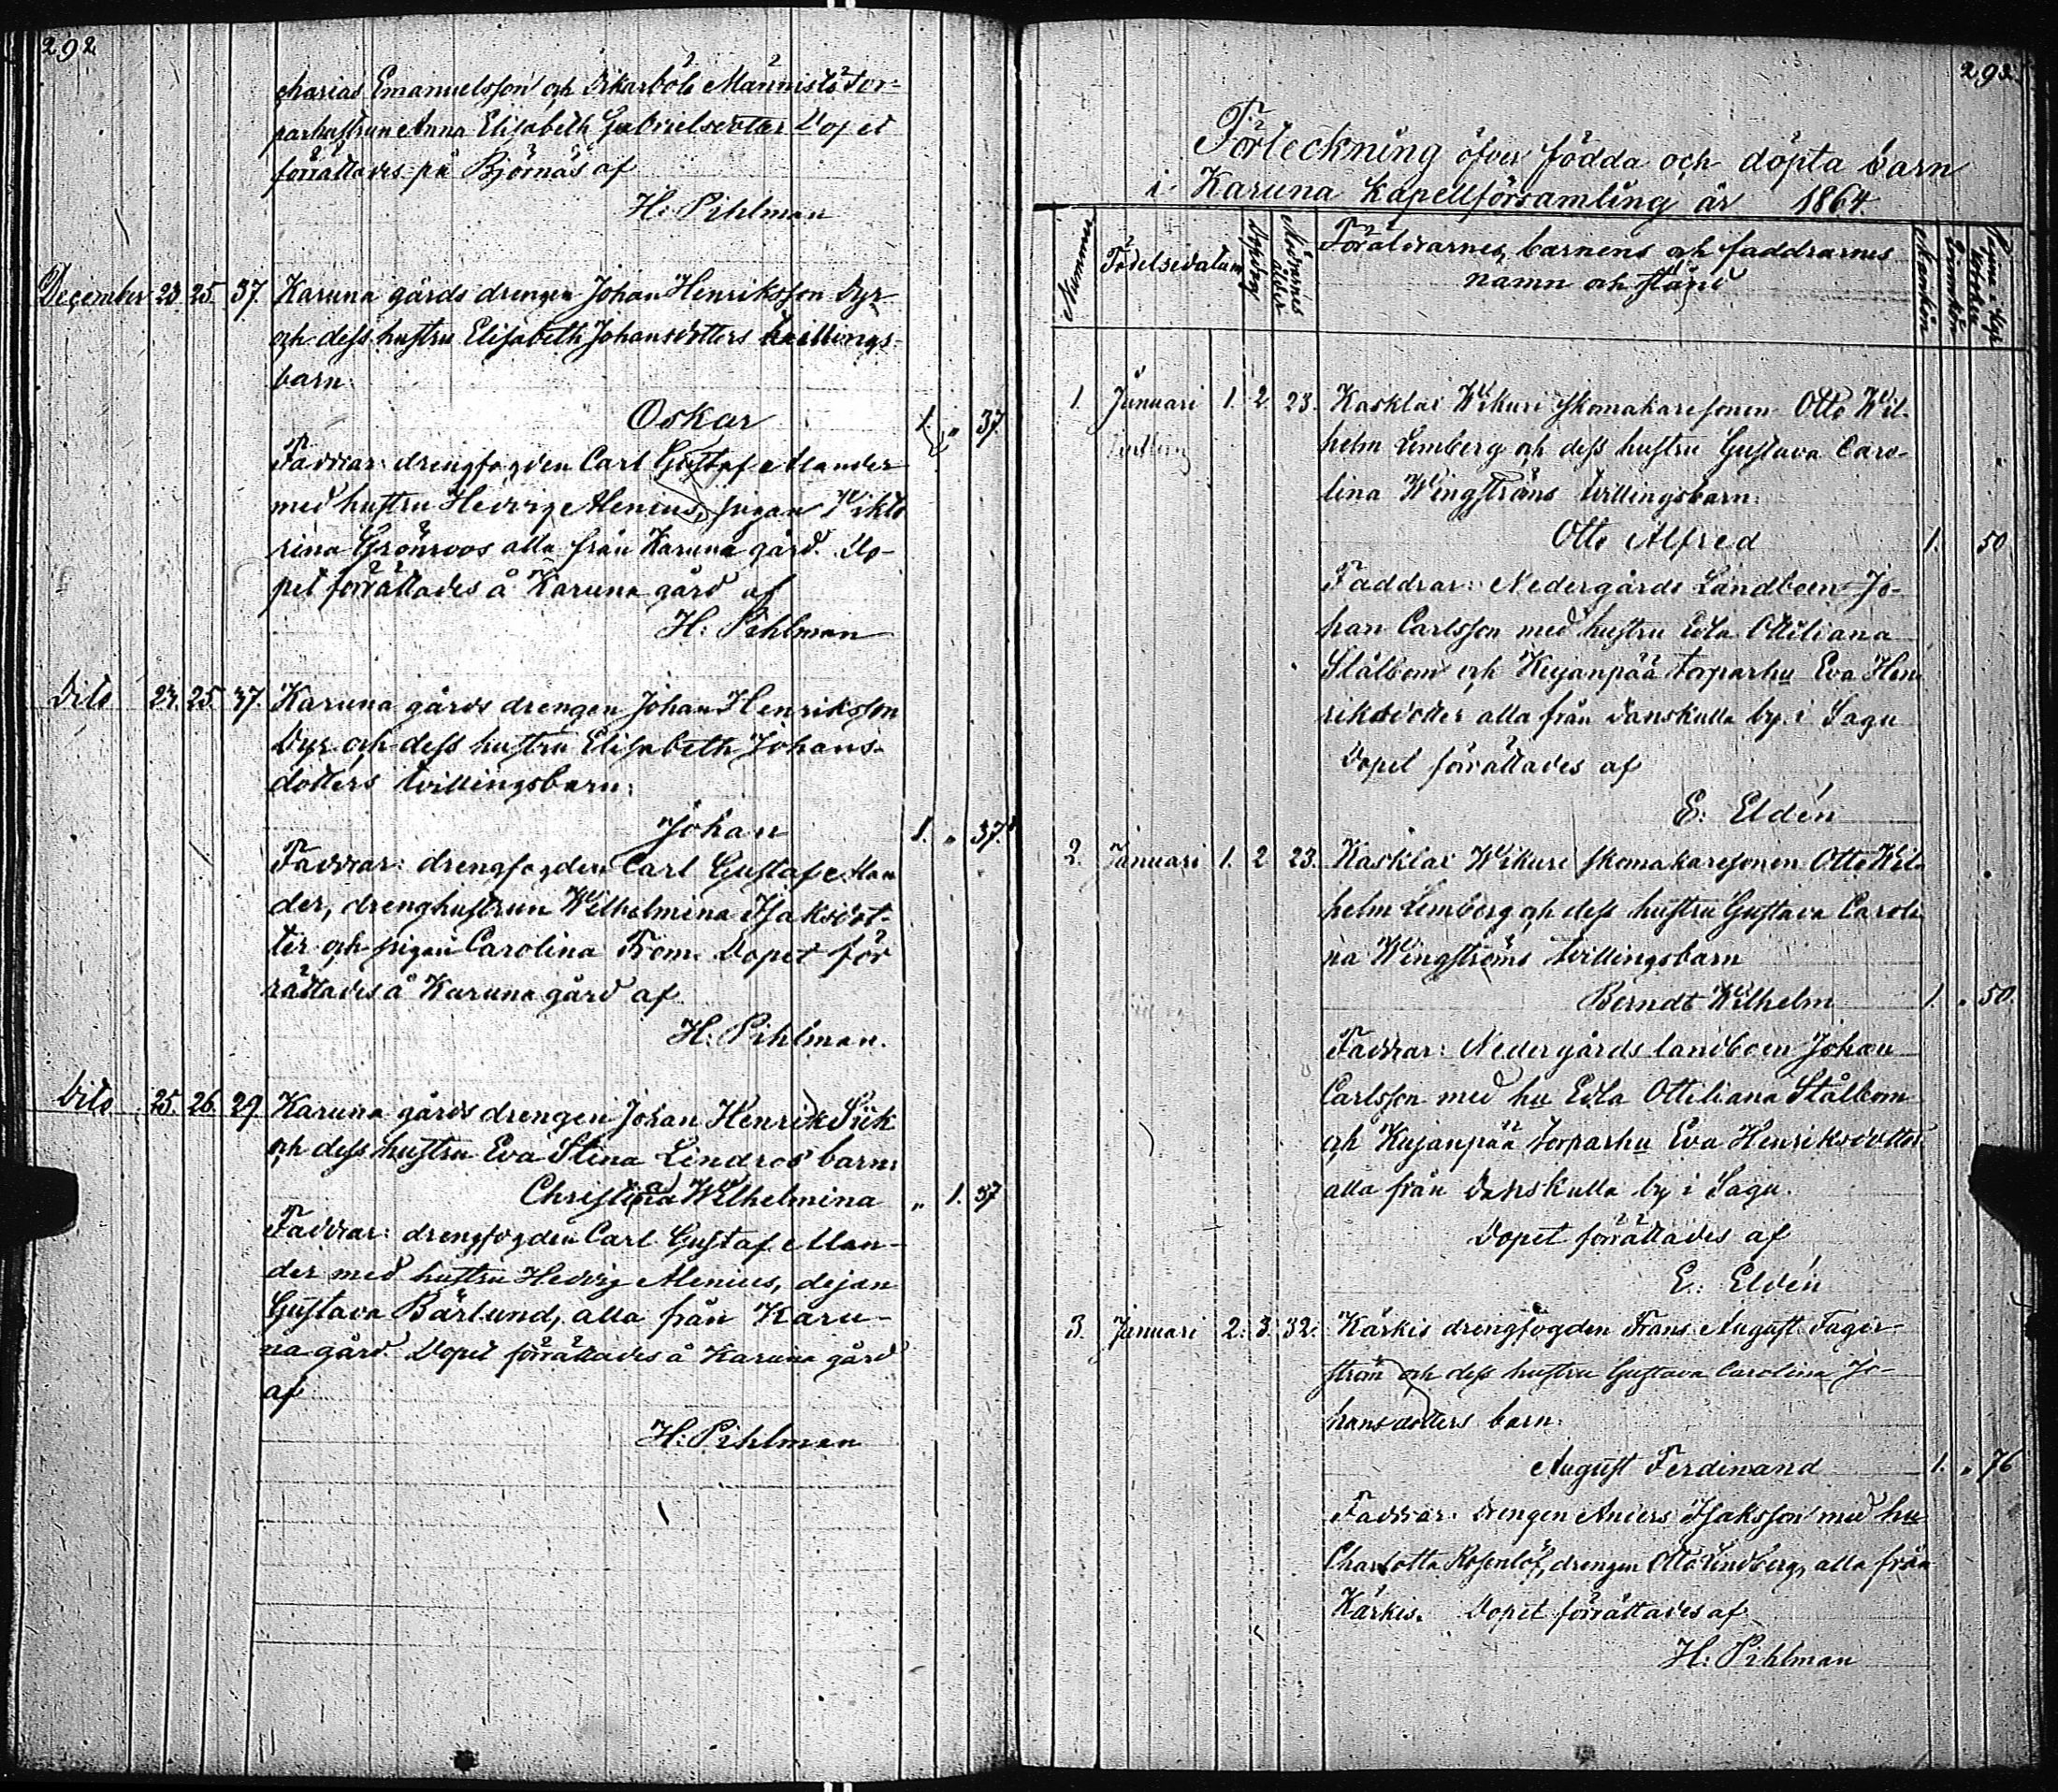 292
charias Emanuelsson och Vikarböle Männistö tor-
parhustrun Anna Elisabeth Gabrielsdotter Dopet
förrättades på Björnäs af
H: Pihlman
December 23. 25. 37. Karuna gårds drengen Johan Henriksson Dyr
och dess hustru Elisabeth Johansdotters tvillings-
barn:
Oskar 1. „ 37.
Faddrar: drengfogden Carl Gustaf Mander
med hustru Hedvig Alenius, pigan Vikto
rina Grönroos alla från Karuna gård. Do-
pet förrättades å Karuna gård af
H: Pihlman
Dito 23. 25. 37. Karuna gårds drengen Johan Henriksson
Dyr och dess hustru Elisabeth Johans-
dotters tvillingsbarn:
Johan 1. „ 37.
Faddrar: drengfogden Carl Gustaf Man
der, drenghustrun Wilhelmina Isaksdot-
ter och pigan Carolina From. Dopet för
rättades å Karuna gård af
H: Pihlman.
Dito 25. 26. 29. Karuna gårds drengen Johan Henrik Siik
och dess hustru Eva Stina Lindros barn:
Christina Wilhelmina „ 1. 37
Faddrar: drengfogden Carl Gustaf Man-
der med hustru Hedvig Alenius, dejan
Gustava Bärlund, alla från Karu-
na gård. Dopet förrättades å Karuna gård
af
H: Pihlman
292.
Förteckning öfver födda och döpta barn
i Karuna kapellförsamling år 1864.
Nummer Födelsedatum Dopdag Mödrarnes ålder Föräldrarnes, barnens och faddrarnes
namn och stånd Mankön Qvinnkön
1. Januari 1. 2. 23. Kasklax Wikuri skomakaresonen Otto Wil-
helm Lemberg och dess hustru Gustava Caro-
lina Wingströms tvillingsbarn:
Otto Alfred 1. 50
Faddrar: Nedergårds Landboen Jo-
han Carlsson med hustru Edla Ottiliana
Stålbom och Kujanpää torparhu Eva Hen
riksdotter alla från Danskulla by i Sagu
Dopet förrättades af
E: Eldén
2. Januari 1. 2 23. Kasklax Wikuri skomakaresonen Otto Wil-
helm Lemberg och dess hustru Gustava Caroli
na Wingströms tvillingsbarn
Berndt Wilhelm 1. „ 50.
Faddrar: Nedergårds landboen Johan
Carlsson med hu Edla Ottiliana Stålbom
och Kujanpää torparhu Eva Henriksdotter
alla från Danskulla by i Sagu.
Dopet förrättades af
E: Eldén
3. Januari 2. 3. 32. Kärkis drengfogden Frans August Fager-
ström och dess hustru Gustava Carolina Jo-
hansdotters barn:
August Ferdinand 1. „ 76
Faddrar: drengen Anders Isaksson med hu
Charlotta Rosenlöf, drengen Otto Lindberg, alla från
Kärkis. Dopet förrättades af
H: Pihlman